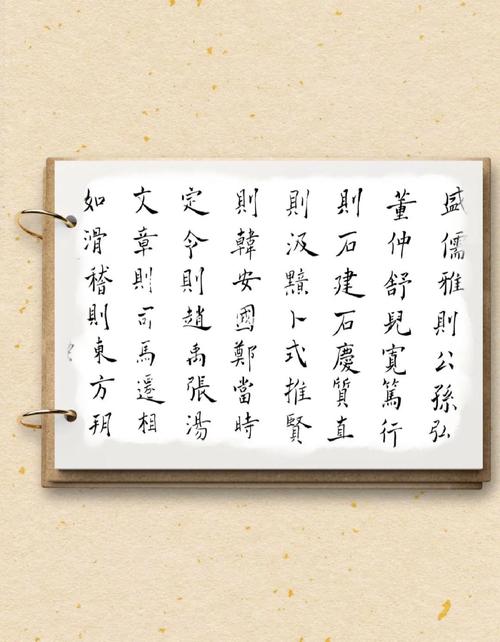 盛儒雅則公孫弘
董仲舒兒寬篤行
則石建石慶質直
則汲黯卜式推賢
則韓安國鄭當時
定令則趙禹張湯
文章則司馬遷相
如滑稽則東方朔